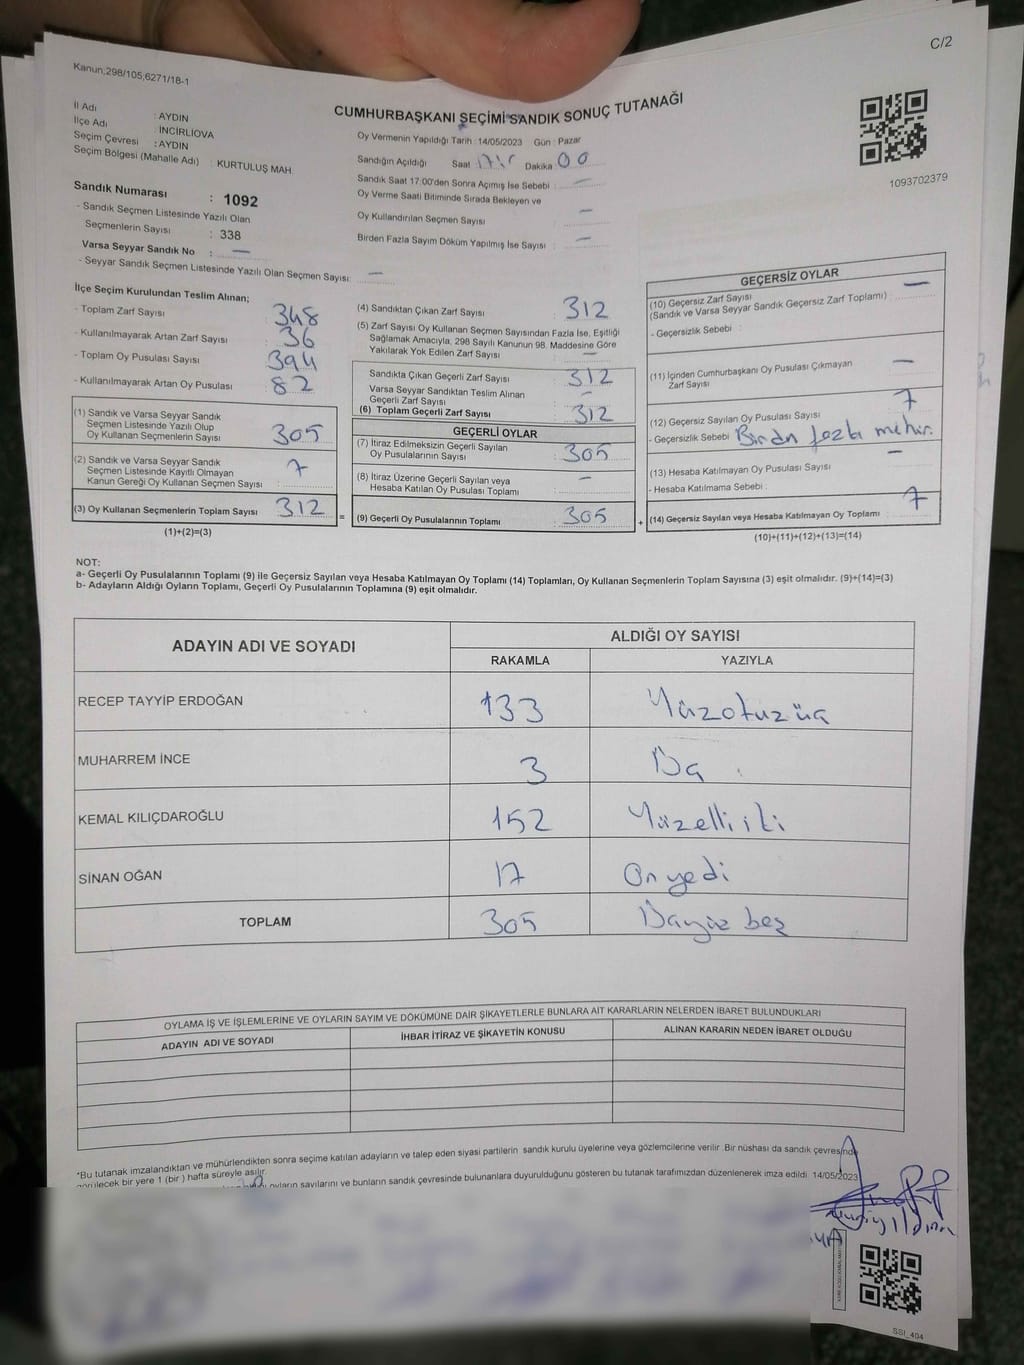 C/2
Kanun;298/105;6271/18-1
CUMHURBAŞKANI SEÇİMİ SANDIK SONUÇ TUTANAĞI
İl Adı : AYDIN
İlçe Adı : İNCİRLİOVA
Seçim Çevresi : AYDIN
Seçim Bölgesi (Mahalle Adı) : KURTULUŞ MAH
Sandık Numarası : 1092
- Sandık Seçmen Listesinde Yazılı Olan
Seçmenlerin Sayısı : 338
Varsa Seyyar Sandık No : —
- Seyyar Sandık Seçmen Listesinde Yazılı Olan Seçmen Sayısı: —
Oy Vermenin Yapıldığı Tarih : 14/05/2023 Gün : Pazar
Sandığın Açıldığı Saat 17 Dakika 00
Sandık Saat 17:00'den Sonra Açımış İse Sebebi : —
Oy Verme Saati Bitiminde Sırada Bekleyen ve
Oy Kullandırılan Seçmen Sayısı : —
Birden Fazla Sayım Döküm Yapılmış İse Sayısı : —
1093702379
İlçe Seçim Kurulundan Teslim Alınan;
- Toplam Zarf Sayısı : 348
- Kullanılmayarak Artan Zarf Sayısı : 36
- Toplam Oy Pusulası Sayısı : 394
- Kullanılmayarak Artan Oy Pusulası : 82
(1) Sandık ve Varsa Seyyar Sandık
Seçmen Listesinde Yazılı Olup
Oy Kullanan Seçmenlerin Sayısı : 305
(2) Sandık ve Varsa Seyyar Sandık
Seçmen Listesinde Kayıtlı Olmayan
Kanun Gereği Oy Kullanan Seçmen Sayısı : 7
(3) Oy Kullanan Seçmenlerin Toplam Sayısı : 312
(1)+(2)=(3)
(4) Sandıktan Çıkan Zarf Sayısı : 312
(5) Zarf Sayısı Oy Kullanan Seçmen Sayısından Fazla İse, Eşitliği
Sağlamak Amacıyla, 298 Sayılı Kanunun 98. Maddesine Göre
Yakılarak Yok Edilen Zarf Sayısı : —
Sandıkta Çıkan Geçerli Zarf Sayısı : 312
Varsa Seyyar Sandıktan Teslim Alınan
Geçerli Zarf Sayısı : —
(6) Toplam Geçerli Zarf Sayısı : 312
GEÇERLİ OYLAR
(7) İtiraz Edilmeksizin Geçerli Sayılan
Oy Pusulalarının Sayısı : 305
(8) İtiraz Üzerine Geçerli Sayılan veya
Hesaba Katılan Oy Pusulası Toplamı : —
= (9) Geçerli Oy Pusulalarının Toplamı : 305 +
GEÇERSİZ OYLAR
(10) Geçersiz Zarf Sayısı
(Sandık ve Varsa Seyyar Sandık Geçersiz Zarf Toplamı) : —
- Geçersizlik Sebebi :
(11) İçinden Cumhurbaşkanı Oy Pusulası Çıkmayan
Zarf Sayısı : —
(12) Geçersiz Sayılan Oy Pusulası Sayısı : 7
- Geçersizlik Sebebi : Birdn fazla mühür.
(13) Hesaba Katılmayan Oy Pusulası Sayısı : —
- Hesaba Katılmama Sebebi :
(14) Geçersiz Sayılan veya Hesaba Katılmayan Oy Toplamı : 7
(10)+(11)+(12)+(13)=(14)
NOT:
a- Geçerli Oy Pusulalarının Toplamı (9) ile Geçersiz Sayılan veya Hesaba Katılmayan Oy Toplamı (14) Toplamları, Oy Kullanan Seçmenlerin Toplam Sayısına (3) eşit olmalıdır. (9)+(14)=(3)
b- Adayların Aldığı Oyların Toplamı, Geçerli Oy Pusulalarının Toplamına (9) eşit olmalıdır.
ADAYIN ADI VE SOYADI ALDIĞI OY SAYISI
RAKAMLA YAZIYLA
RECEP TAYYİP ERDOĞAN 133 Yüzotuzüç
MUHARREM İNCE 3 Üç
KEMAL KILIÇDAROĞLU 152 Yüzelliiki
SİNAN OĞAN 17 Onyedi
TOPLAM 305 Üçyüz beş
OYLAMA İŞ VE İŞLEMLERİNE VE OYLARIN SAYIM VE DÖKÜMÜNE DAİR ŞİKAYETLERLE BUNLARA AİT KARARLARIN NELERDEN İBARET BULUNDUKLARI
ADAYIN ADI VE SOYADI İHBAR İTİRAZ VE ŞİKAYETİN KONUSU ALINAN KARARIN NEDEN İBARET OLDUĞU
*Bu tutanak imzalandıktan ve mühürlendikten sonra seçime katılan adayların ve talep eden siyasi partilerin sandık kurulu üyelerine veya gözlemcilerine verilir. Bir nüshası da sandık çevresinde
görülecek bir yere 1 (bir) hafta süreyle asılır.
oyların sayılarını ve bunların sandık çevresinde bulunanlara duyurulduğunu gösteren bu tutanak tarafımızdan düzenlenerek imza edildi. 14/05/2023
SSI_404